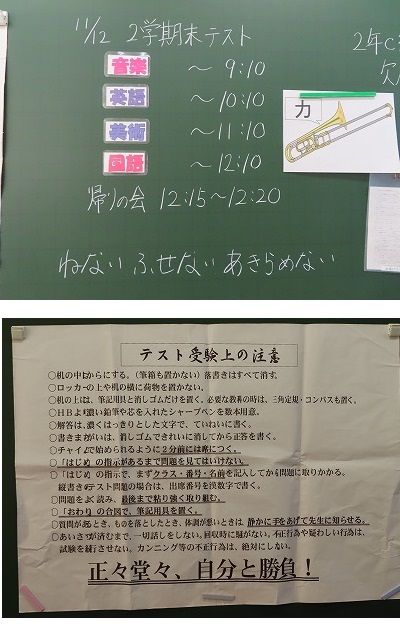 11/12 2学期末テスト
音楽 〜9:10
英語 〜10:10
美術 〜11:10
国語 〜12:10
帰りの会 12:15〜12:20
ねない ふせない あきらめない
2年C
欠
カ
テスト受験上の注意
○机の中はからにする。（筆箱も置かない）落書きはすべて消す。
○ロッカーの上や机の横に荷物を置かない。
○机の上は、筆記用具と消しゴムだけを置く。必要な教科の時は、三角定規・コンパスも置く。
○HBより濃い鉛筆や芯を入れたシャープペンを数本用意。
○解答は、濃くはっきりとした文字で、ていねいに書く。
○書きまちがいは、消しゴムできれいに消してから正答を書く。
○チャイムで始められるように2分前には席につく。
○「はじめ」の指示があるまで問題を見てはいけない。
○「はじめ」の指示で、まずクラス・番号・名前を記入してから問題に取りかかる。
縦書きのテスト問題の場合は、出席番号を漢数字で書く。
○問題をよく読み、最後まで粘り強く取り組む。
○「おわり」の合図で、筆記用具を置く。
○質問があるとき、ものを落としたとき、体調が悪いときは、静かに手をあげて先生に知らせる。
○あいさつが済むまで、一切話をしない。回収時に騒がない。不正行為や疑わしい行為は、
試験を続行させない。カンニング等の不正行為は、絶対にしない。
正々堂々、自分と勝負！